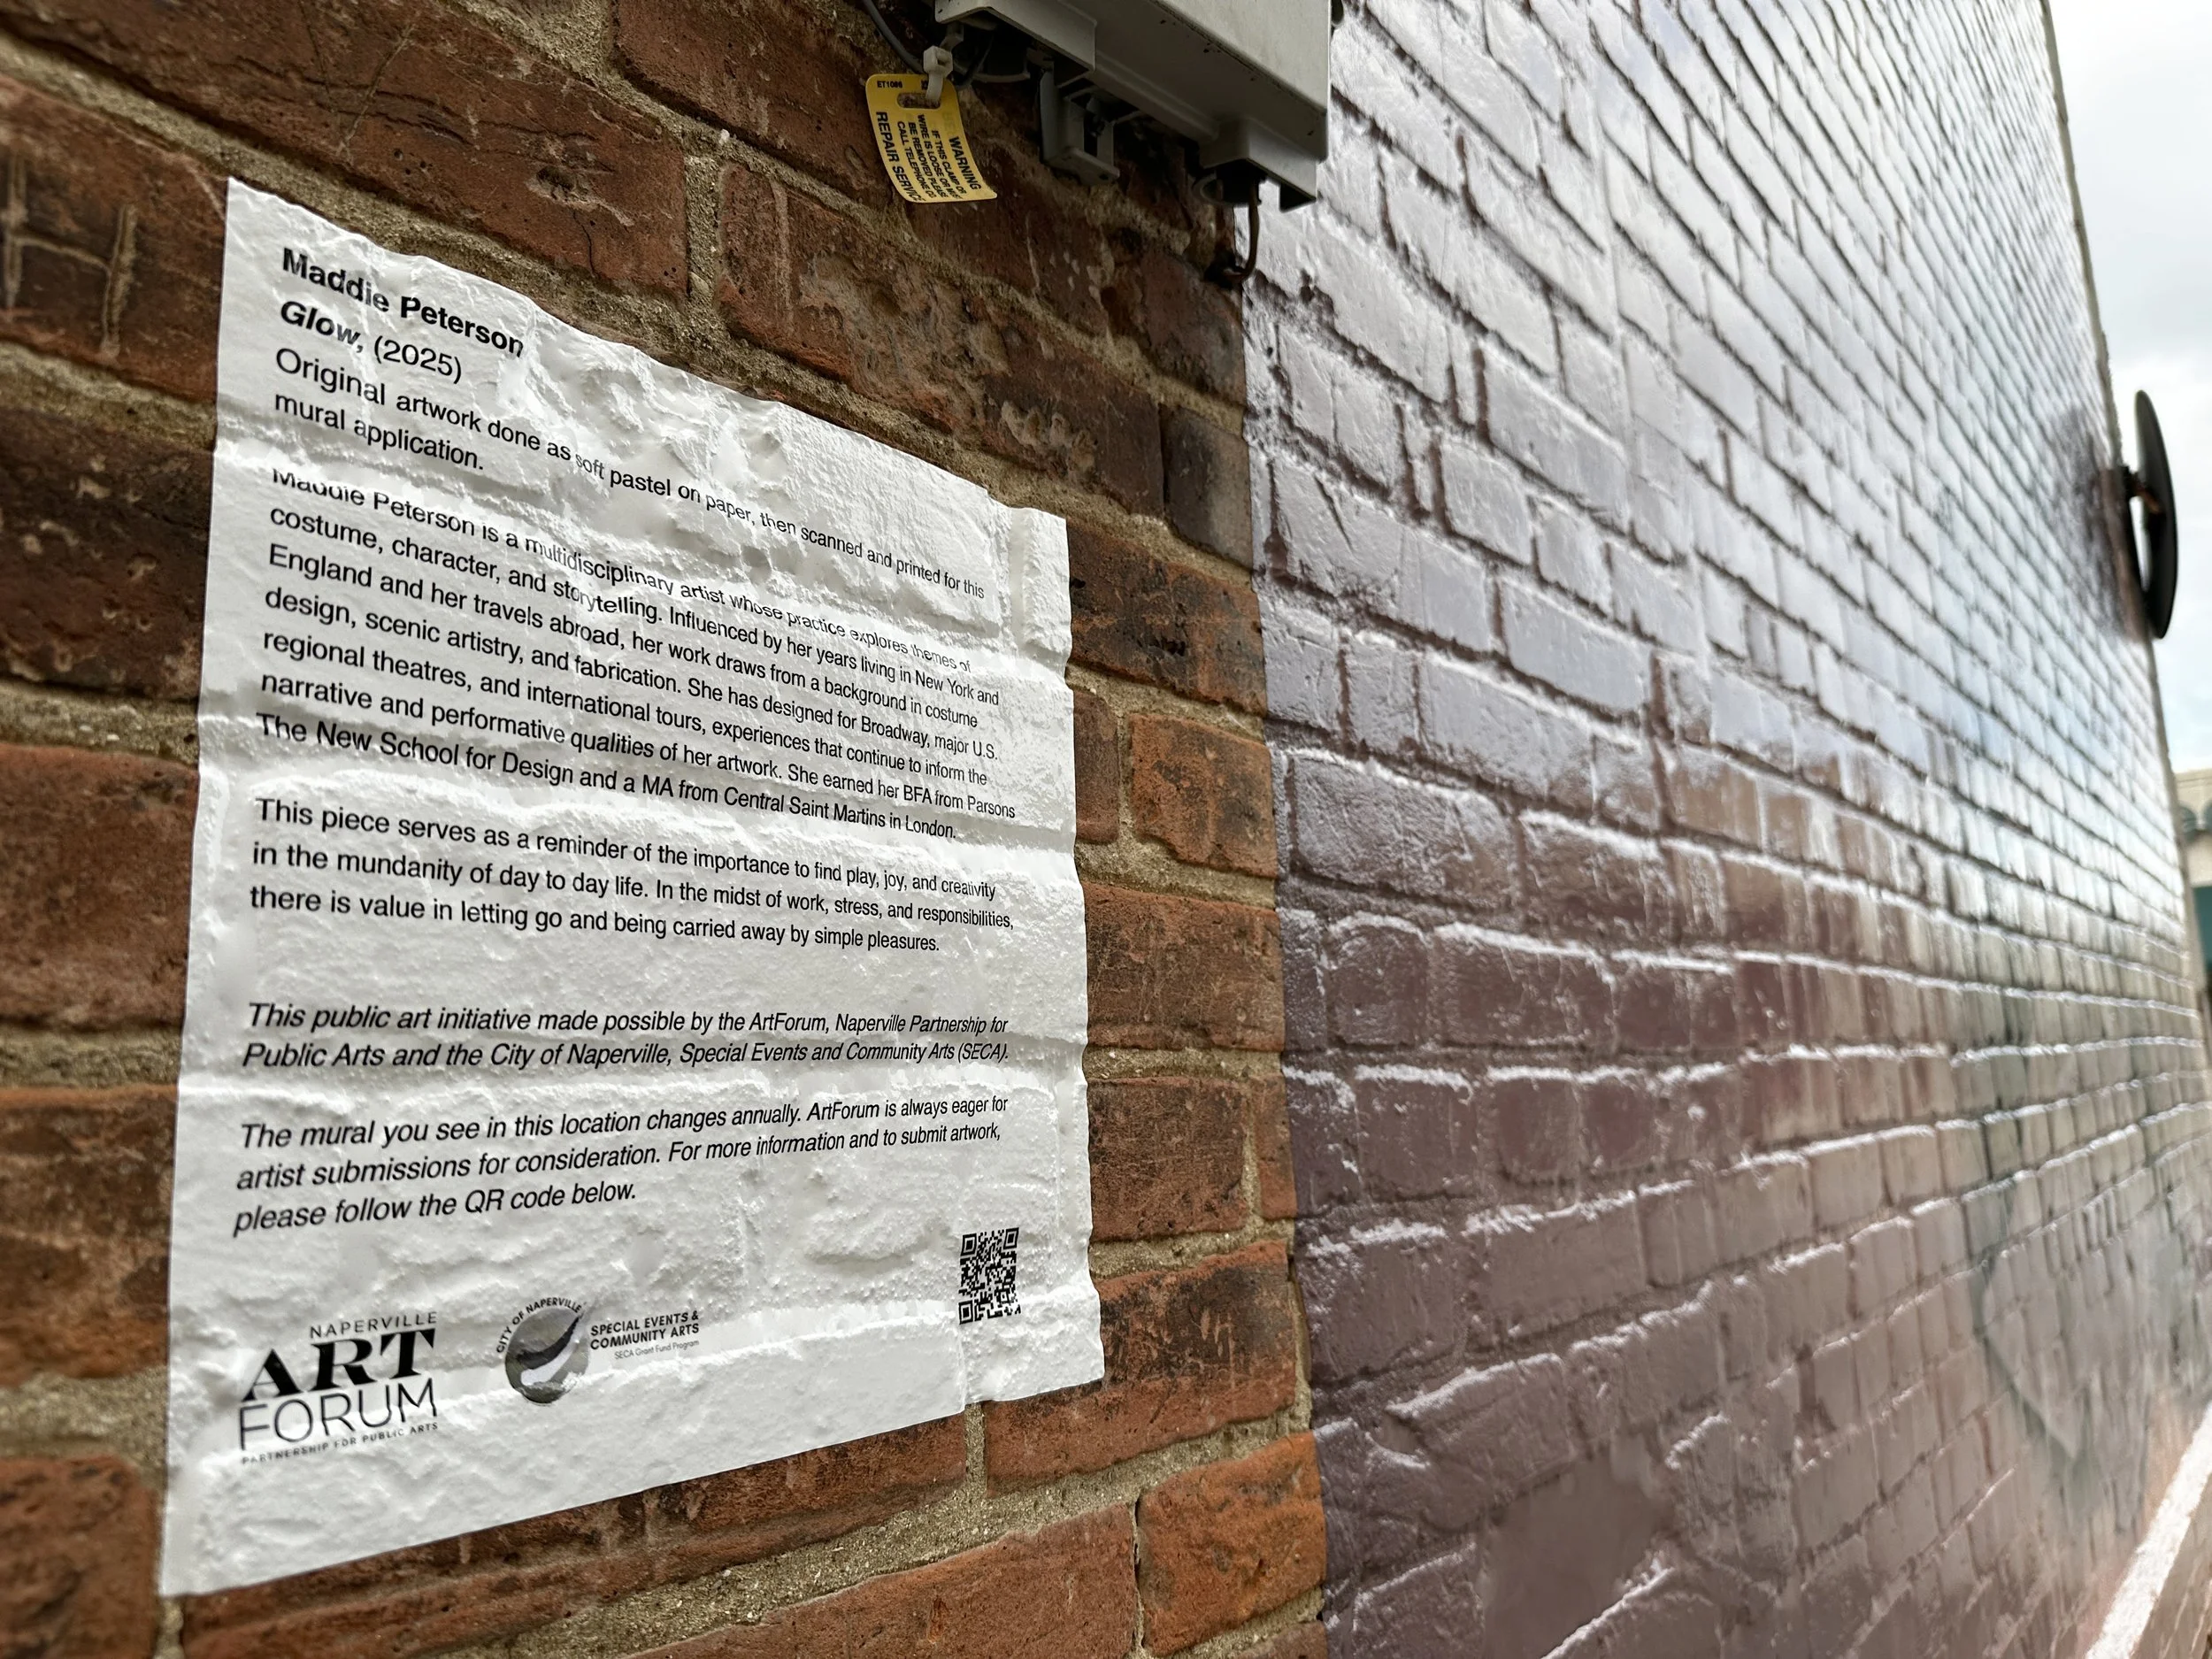 ET1086
WARNING
IF THIS CLAMP OR
WIRE IS LOOSE OR MUST
BE REMOVED PLEASE
CALL TELEPHONE CO
REPAIR SERVICE
Maddie Peterson
Glow, (2025)
Original artwork done as soft pastel on paper, then scanned and printed for this
mural application.
Maddie Peterson is a multidisciplinary artist whose practice explores themes of
costume, character, and storytelling. Influenced by her years living in New York and
England and her travels abroad, her work draws from a background in costume
design, scenic artistry, and fabrication. She has designed for Broadway, major U.S.
regional theatres, and international tours, experiences that continue to inform the
narrative and performative qualities of her artwork. She earned her BFA from Parsons
The New School for Design and a MA from Central Saint Martins in London.
This piece serves as a reminder of the importance to find play, joy, and creativity
in the mundanity of day to day life. In the midst of work, stress, and responsibilities,
there is value in letting go and being carried away by simple pleasures.
This public art initiative made possible by the ArtForum, Naperville Partnership for
Public Arts and the City of Naperville, Special Events and Community Arts (SECA).
The mural you see in this location changes annually. ArtForum is always eager for
artist submissions for consideration. For more information and to submit artwork,
please follow the QR code below.
NAPERVILLE
ART
FORUM
PARTNERSHIP FOR PUBLIC ARTS
CITY OF NAPERVILLE
SPECIAL EVENTS &
COMMUNITY ARTS
SECA Grant Fund Program